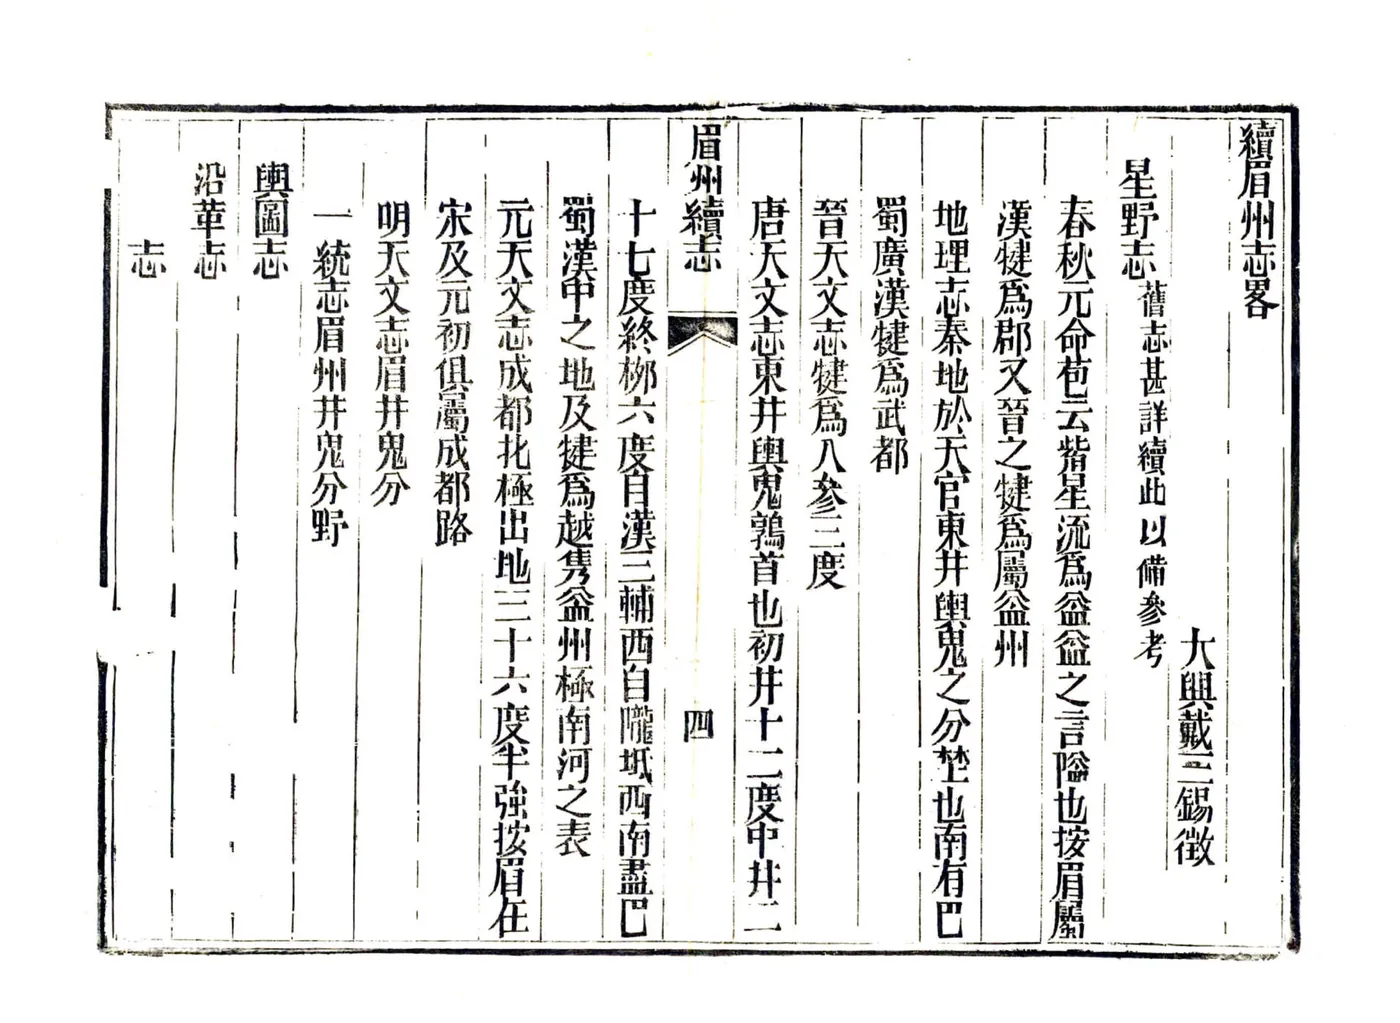 續眉州志畧
大興戴三錫徵
星野志舊志甚詳續此以備參考
春秋元命苞云觜星流爲益益之言隘也按眉屬
漢犍爲郡又晉之犍爲屬益州
地理志秦地於天官東井輿鬼之分埜也南有巴
蜀廣漢犍爲武都
晉天文志犍爲入參三度
唐天文志東井輿鬼鶉首也初井十二度中井二
眉州續志
四
十七度終栁六度自漢三輔西自隴坻西南盡巴
蜀漢中之地及犍爲越雋益州極南河之表
元天文志成都北極出地三十六度半強按眉在
宋及元初俱屬成都路
明天文志眉井鬼分
一統志眉州井鬼分野
輿圖志
沿革志
志